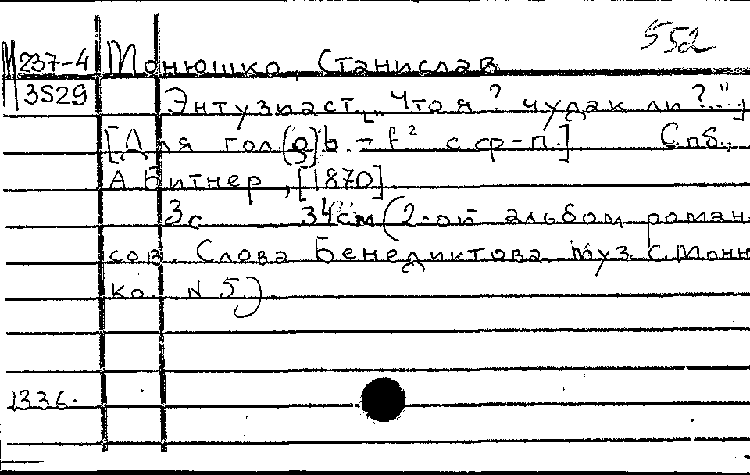 552
М 237-4 Монюшко, Станислав
3529 Энтузиаст [„Что я? чудак ли?.."]
[Для гол[о]b = f² с ср-п.] Спб.,
А. Битнер, [1870]
3с 34см (2-ой альбом роман-
сов. Слова Бенедиктова. Муз. С. Монюш
ко. N 5)
1336.